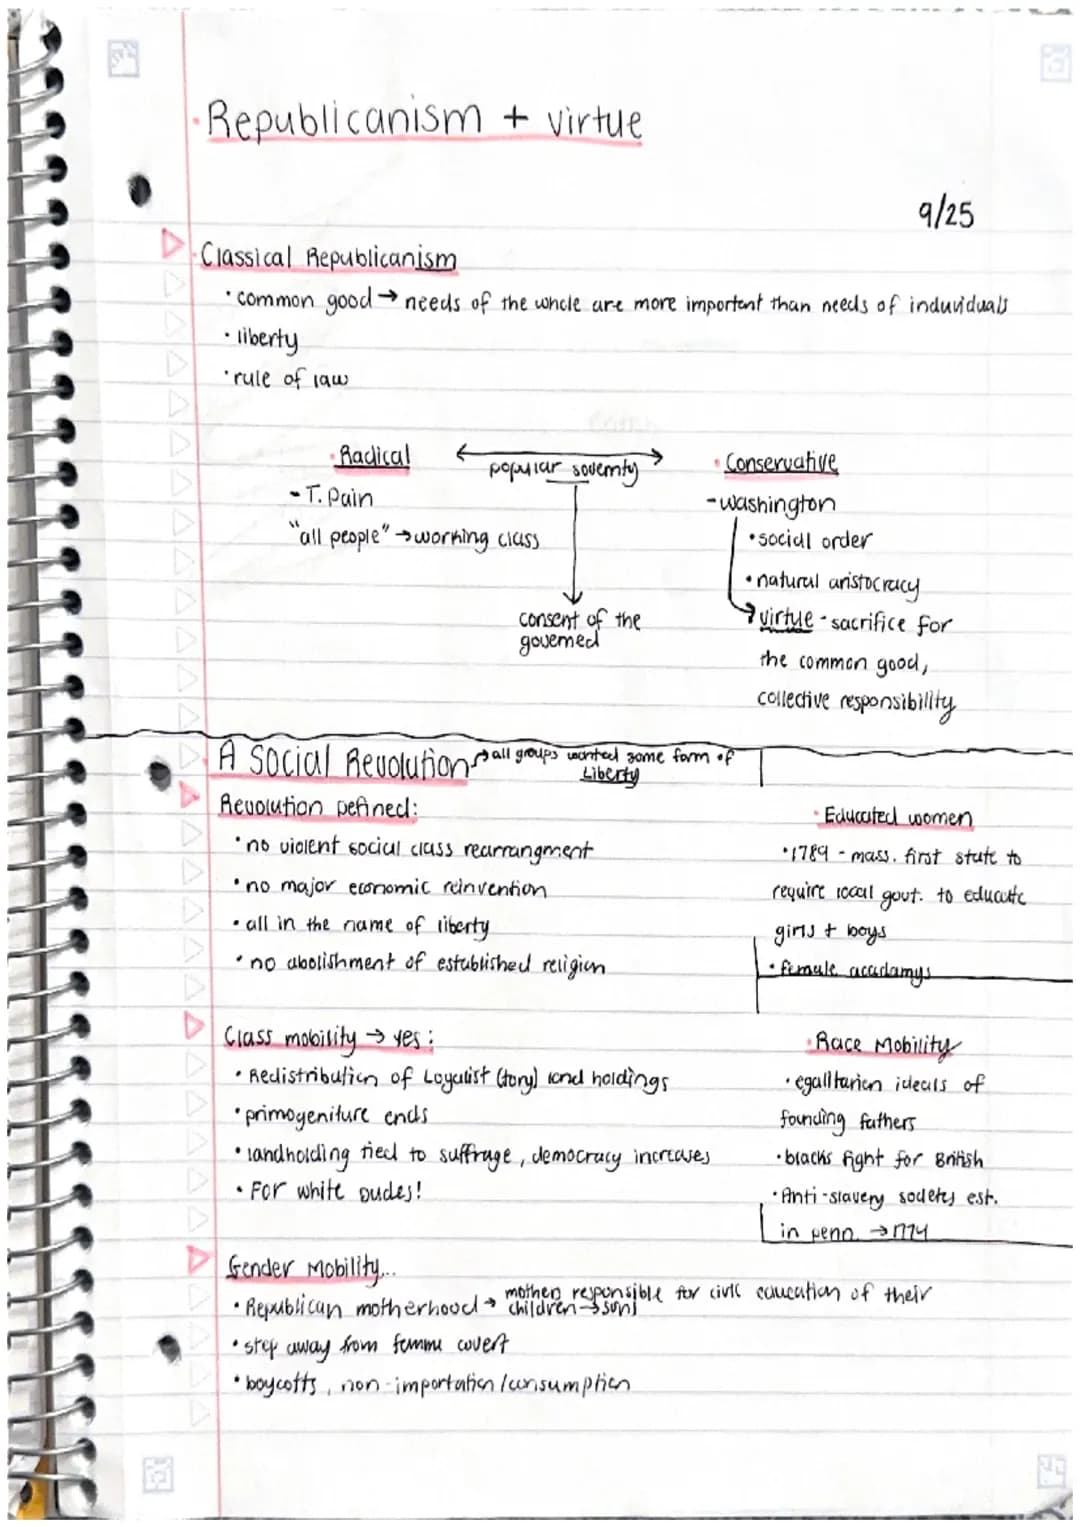 · Republicanism + virtue
9/25
· Classical Republicanism
· common good → needs of the whole are more important than needs of induviduals
· liberty
· rule of law
· Radical
- T. Pain
"all people" → working class
popular sovernty
consent of the
governed
· Conservative
- washington
· social order
· natural aristocracy
→ virtue - sacrifice for
the common good,
collective responsibility
A Social Revolution → all groups wanted some form of
Liberty
Revolution Defined:
· no violent social class rearrangment
· no major economic reinvention
· all in the name of liberty
· no abolishment of established religion
· Educated women
· 1789 - mass. first state to
require local govt. to educate
girls + boys
· female acadamys
Class mobility → yes:
· Redistribution of Loyalist (tory) land holdings
· primogeniture ends
· landholding tied to suffrage, democracy increases
· For white Dudes!
· Race Mobility
· egalitarian ideals of
founding fathers
· blacks fight for British
· Anti-slavery societys est.
in penn. → 1774
Gender Mobility...
· Republican motherhood → mothers responsible for civic education of their
children → sons
· step away from femme covert
· boycotts, non-importation/consumption